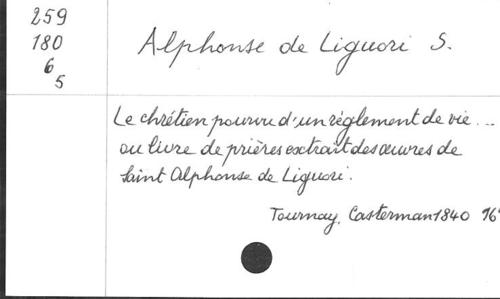 259
180
6
5
Alphonse de Liguori S.
Le chrétien pourvu d'un règlement de vie...
ou livre de prières extrait des œuvres de
Saint Alphonse de Liguori.
Tournay, Casterman 1840 16°